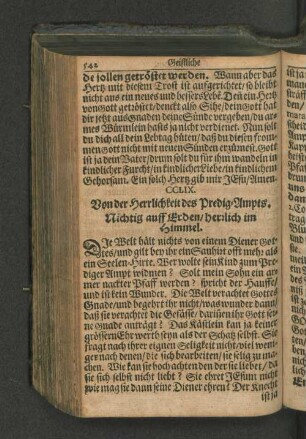 542 Geistliche
de sollen getröstet werden. Wann aber das
Hertz mit diesem Trost ist auffgerichtet / so bleibt
nicht aus ein neues und bessers Lebē. Deñ ein Hertz
von Gott getröstet / denckt also Sihe / dein Gott hat
dir jetzt aus Gnaden deine Sünde vergeben / du ar-
mes Würmlein hasts ja nicht verdienet. Nun solt
du dich all dein Lebtag hüten / daß du diesen from-
men Gott nicht mit neuen Sünden erzürnest. Gott
ist ja dein Vater / drum solt du für ihm wandeln in
kindlicher Furcht / in kindlicher Liebe / in kindlichem
Gehorsam. Ein solch Hertz gib mir JEsu / Amen.
CCLIX.
Von der Herrlichkeit des Predig-Ampts.
Nichtig auff Erden / herrlich im
Himmel.
DIe Welt hält nichts von einem Diener Got-
tes / und gilt bey ihr ein Sauhirt offt mehr / als
ein Seelen-Hirte. Wer wolt sein Kind zum Pre-
diger Ampt widmen? Solt mein Sohn ein ar-
mer nackter Pfaff werden? spricht der Hauffe /
und ist kein Wunder. Die Welt verachtet Gottes
Gnade / und begehrt ihr nicht / was wunder dann /
daß sie verachtet die Gefässe / dariñen ihr Gott sei-
ne Gnade anträgt? Das Kästlein kan ja keiner
grössern Ehr werth seyn als der Schatz selbst. Sie
fragt nach ihrer eignen Seligkeit nicht / viel weni-
ger nach denen / die sich bearbeiten / sie selig zu ma-
chen. Wie kan sie hoch achten den der sie liebet / da
sie sich selbst nicht liebt? Sie ehret JEsum nicht
wie mag sie dann seine Diener ehren? Der Knecht
ist ja